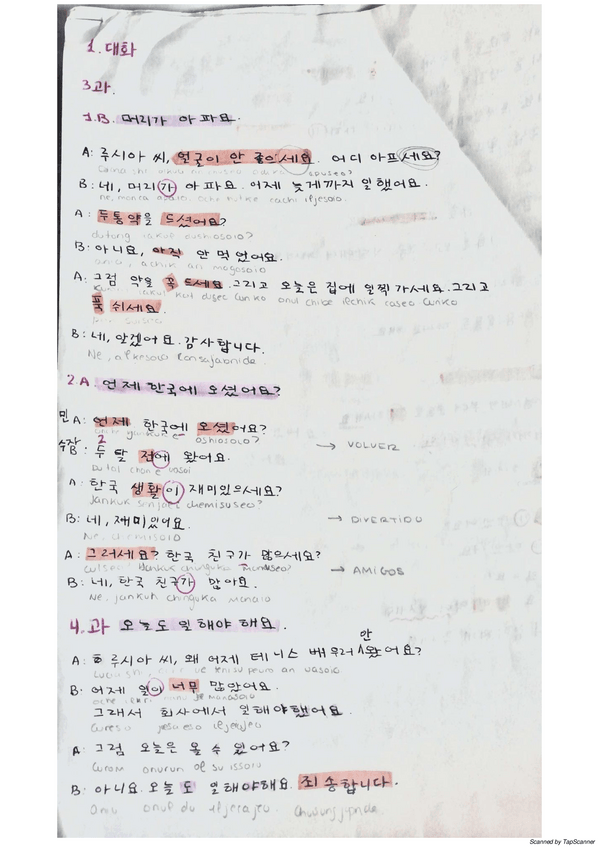 1. 대화
3과.
1.B. 머리가 아파요.
A: 루시아 씨, 얼굴이 안 좋으세요. 어디 아프세요?
apuseo?
B: 네, 머리가 아파요. 어제 늦게까지 일했어요.
A: 두통약을 드셨어요?
dutong iakul dushiosoio?
B: 아니요, 아직 안 먹었어요.
achik an mogosoio
A: 그럼 약을 꼭 드세요. 그리고 오늘은 집에 일찍 가세요. 그리고
iakul kot duseo cunko onul chibe ilchik caseo cunko
푹 쉬세요.
B: 네, 알겠어요. 감사합니다.
Ne, alkesoio
2.A. 언제 한국에 오셨어요?
민 A: 언제 한국에 오셨어요?
oshiosoio?
수잔 B: 두 달 전에 왔어요.
2
→ VOLVER
A: 한국 생활이 재미있으세요?
chemisuseo?
B: 네, 재미있어요.
→ DIVERTIDO
Ne, chemisoio
A: 그러세요? 한국 친구가 많으세요?
→ AMIGOS
B: 네, 한국 친구가 많아요.
Ne, jankuk chinguka manaio
4.과 오늘도 일해야 해요.
A: 루시아 씨, 왜 어제 테니스 배우러 안 왔어요?
B: 어제 일이 너무 많았어요.
그래서 회사에서 일해야했어요.
A: 그럼 오늘은 올 수 있어요?
Curom onurun ol su issoio
B: 아니요. 오늘도 일해야해요. 죄송합니다.
Scanned by TapScanner